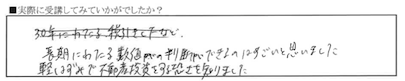 ■実際に受講してみていかがでしたか?
30年にわたる
長期にわたる数値での判断ができるのはすごいと思いました
軽はずみで不動産投資をする恐さを知りました